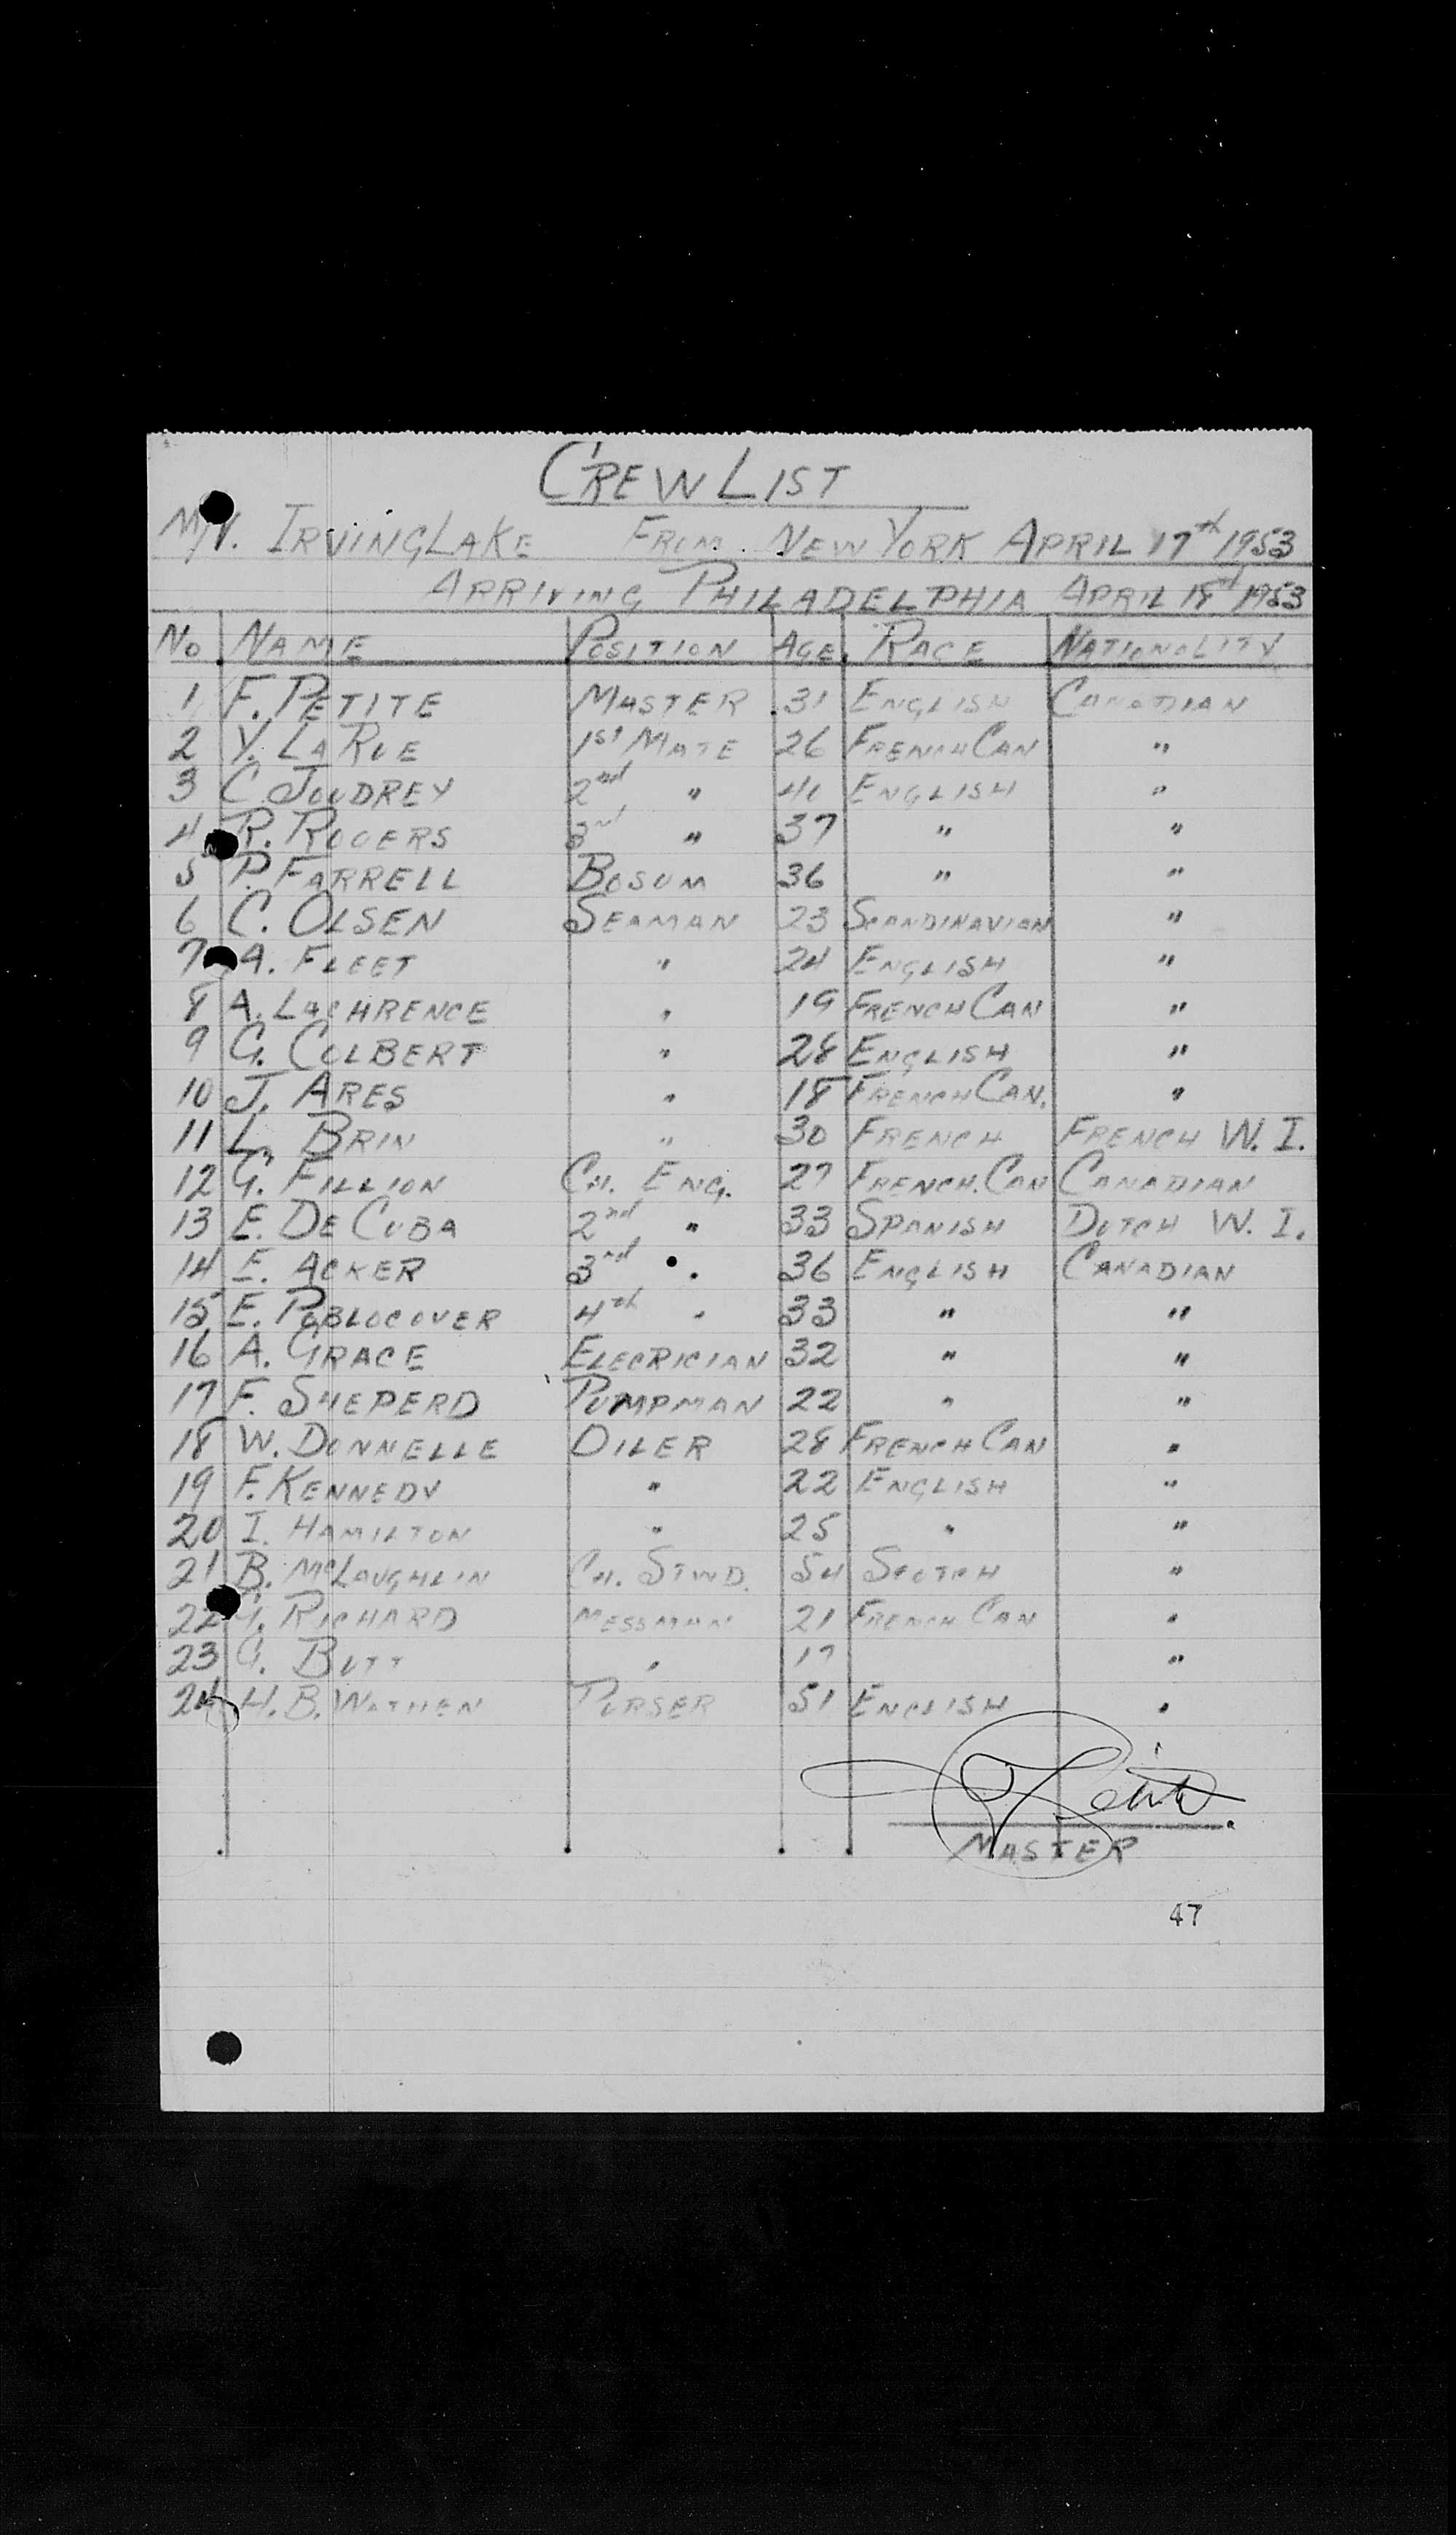 CREW LIST
M/V. IRVINGLAKE FROM NEW YORK APRIL 17th 1953
ARRIVING PHILADELPHIA APRIL 18th 1953
No NAME POSITION AGE RACE NATIONALITY
1 F. PETITE MASTER 31 ENGLISH CANADIAN
2 Y. LA RUE 1st MATE 26 FRENCH CAN "
3 C. JOUDREY 2nd " 40 ENGLISH "
4 R. ROGERS 3rd " 37 " "
5 P. FARRELL BOSUM 36 " "
6 C. OLSEN SEAMAN 23 SCANDINAVIAN "
7 A. FLEET " 24 ENGLISH "
8 A. LACHRENCE " 19 FRENCH CAN "
9 G. COLBERT " 28 ENGLISH "
10 J. ARES " 18 FRENCH CAN. "
11 L. BRIN " 30 FRENCH FRENCH W. I.
12 G. FILLION CH. ENG. 27 FRENCH. CAN CANADIAN
13 E. DE CUBA 2nd " 33 SPANISH DUTCH W. I.
14 E. ACKER 3rd " 36 ENGLISH CANADIAN
15 E. PUBLOCOVER 4th " 33 " "
16 A. GRACE ELECRICIAN 32 " "
17 F. SHEPERD PUMPMAN 22 " "
18 W. DONNELLE OILER 28 FRENCH CAN "
19 F. KENNEDY " 22 ENGLISH "
20 I. HAMILTON " 25 " "
21 B. McLAUGHLIN CH. STWD. 54 SCOTCH "
22 RICHARD MESSMAN 21 FRENCH CAN "
23 G. BUTT " 17 "
24 H. B. WATHEN PURSER 51 ENGLISH "
MASTER
47